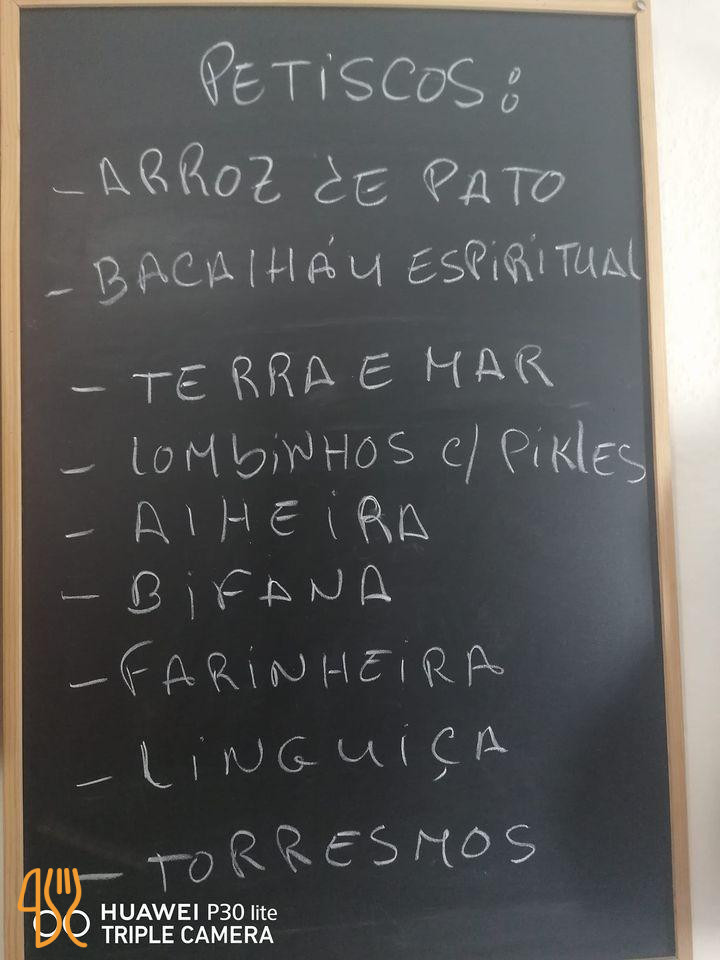 PETISCOS:
- ARROZ DE PATO
- BACAlHÁU ESPIRITUAL
- TERRA E MAR
- lOMbiNHOS c/ PiKlES
- AlHEiRA
- BiFANA
- FARiNHEiRA
- LiNGUiÇA
- TORRESMOS
HUAWEI P30 lite
TRIPLE CAMERA